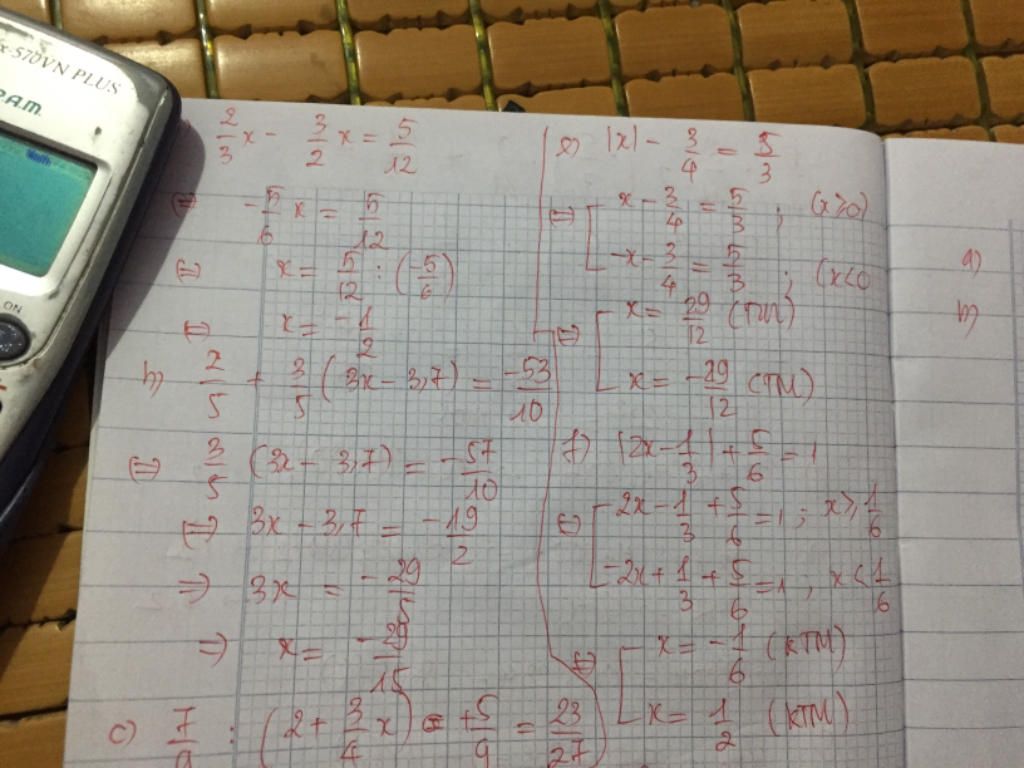 x-570VN PLUS
P.A.M.
Math
ON
2/3 x - 3/2 x = 5/12
⇔ -5/6 x = 5/12
⇔ x = 5/12 : (-5/6)
⇔ x = -1/2
b) 2/5 + 3/5 (3x - 3,7) = -53/10
⇔ 3/5 (3x - 3,7) = -57/10
⇔ 3x - 3,7 = -19/2
⇒ 3x = -29/5
⇒ x = -29/15
c) 7/9 : (2 + 3/4 x) + 5/9 = 23/27
e) |x| - 3/4 = 5/3
⇔ [ x - 3/4 = 5/3 ; (x ≥ 0)
-x - 3/4 = 5/3 ; (x < 0
⇔ [ x = 29/12 (TM)
x = -29/12 (TM)
f) |2x - 1/3| + 5/6 = 1
⇔ [ -2x - 1/3 + 5/6 = 1 ; x ≥ 1/6
-2x + 1/3 + 5/6 = 1 , x < 1/6
⇔ [ x = -1/6 (KTM)
x = 1/2 (KTM)
a)
b)